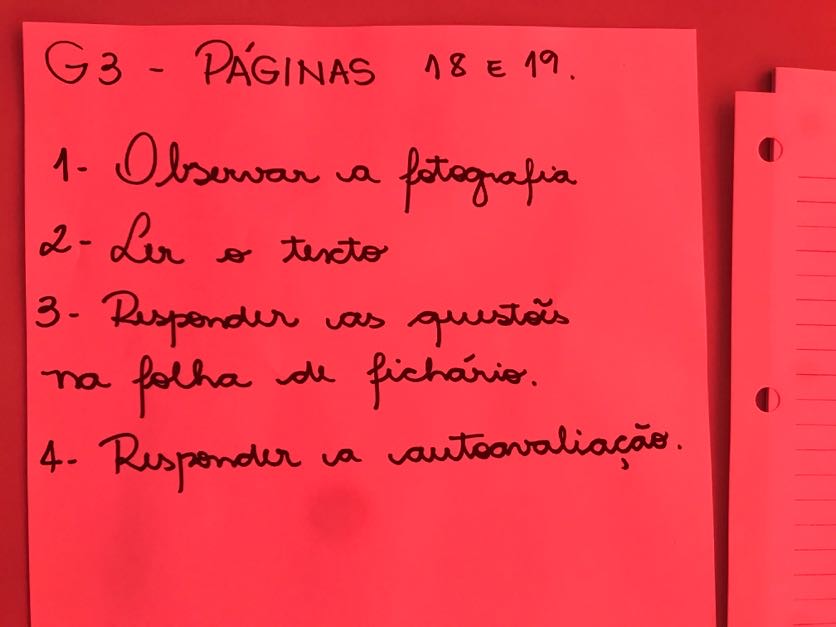 G3 - PÁGINAS 18 E 19.
1- Observar a fotografia
2- Ler o texto
3- Responder as questões
na folha de fichário.
4- Responder a autoavaliação.